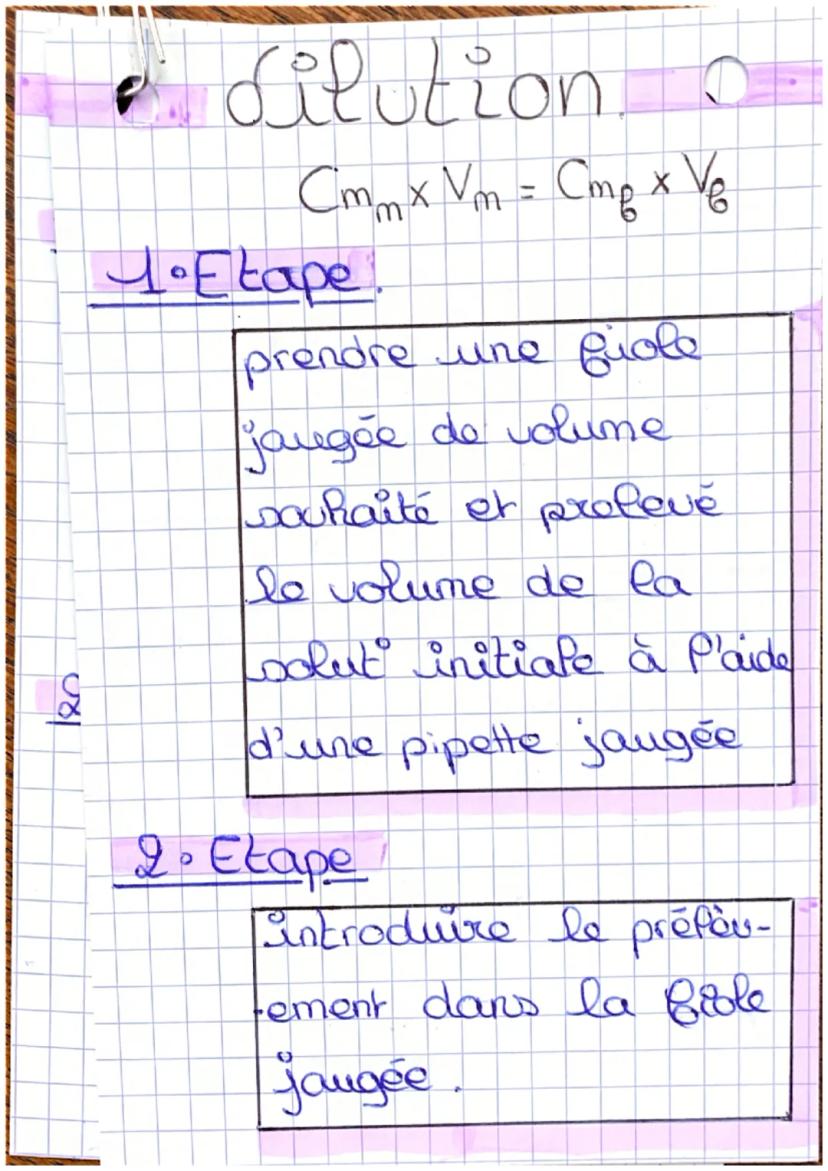 dilution
Cm_m x V_m = Cm_f x V_f
1. Etape.
prendre une fiole
jaugée de volume
souhaité et prelevé
le volume de la
solut° initiale à l'aide
d'une pipette jaugée
2. Etape
introduire le prélèv-
-ement dans la fiole
jaugée.